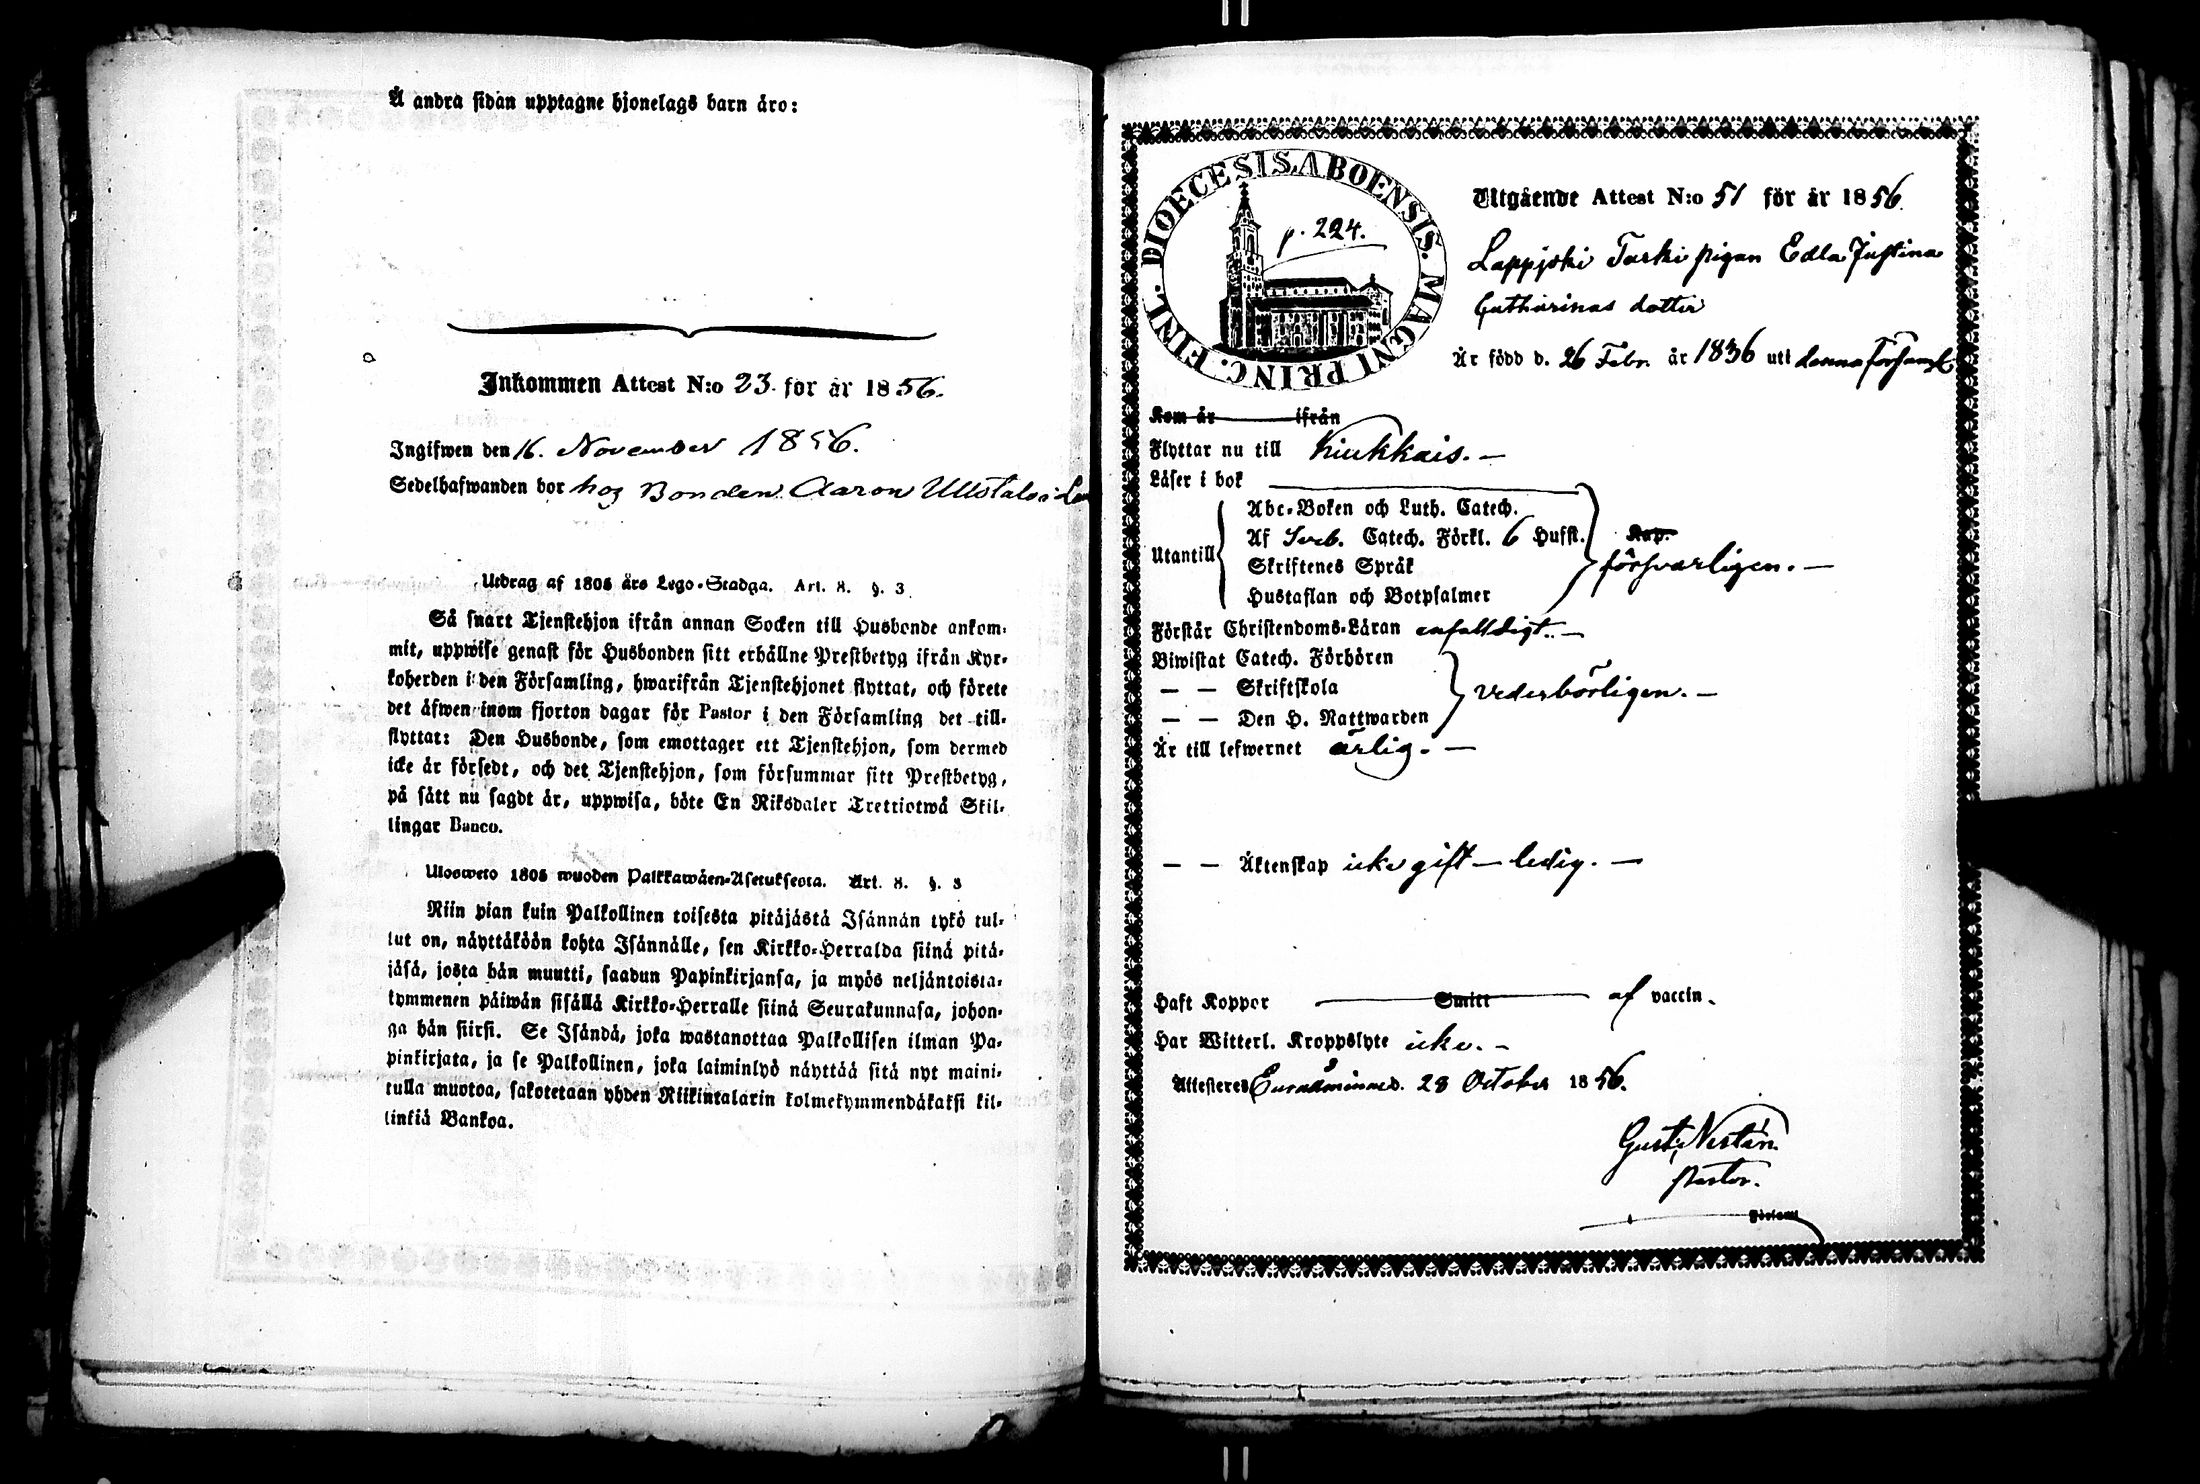 Å andra sidan upptagne hjonelags barn äro:
Inkommen Attest N:o 23. för år 1856.
Ingifwen den 16. November 1856.
Sedelhafwanden bor hos Bonden Aaron Ullstalo i
Utdrag af 1805 års Lego-Stadga. Art. 8. §. 3
Så snart Tjenstehjon ifrån annan Socken till Husbonde ankom-
mit, uppwise genast för Husbonden sitt erhållne Prestbetyg ifrån Kyr-
koherden i den Församling, hwarifrån Tjenstehjonet flyttat, och förete
det äfwen inom fjorton dagar för Pastor i den Församling det till-
flyttat: Den Husbonde, som emottager ett Tjenstehjon, som dermed
icke är försedt, och det Tjenstehjon, som försummar sitt Prestbetyg,
på sätt nu sagdt är, uppwisa, böte En Riksdaler Trettiotwå Skil-
lingar Banco.
Ulosweto 1805 wuoden Palkkawäen-Asetuksesta. Art. 8. §. 3
Niin pian kuin Palkollinen toisesta pitäjästä Isännän tykö tul-
lut on, näyttäköön kohta Isännälle, sen Kirkko-Herralda siinä pitä-
jäsä, josta hän muutti, saadun Papinkirjansa, ja myös neljäntoista-
kymmenen päiwän sisällä Kirkko-Herralle siinä Seurakunnasa, johon-
ga hän siirsi. Se Isändä, joka wastanottaa Palkollisen ilman Pa-
pinkirjata, ja se Palkollinen, joka laiminlyö näyttää sitä nyt maini-
tulla muotoa, sakotetaan yhden Riikintalarin kolmekymmendäkaksi kil-
linkiä Bankoa.
DIOECESIS ABOENSIS. MAGNI PRINC. FINL.
p. 224.
Utgående Attest N:o 51 för år 1856.
Lappjoki Turki pigan Edla Justina
Catharinas dotter
Är född d. 26 Febr. år 1836 uti denna Församl
Kom år ifrån
Flyttar nu till Kiukkais. —
Läser i bok
Utantill
Abc-Boken och Luth. Catech.
Af Sveb. Catech. Förkl. 6 Hufst.
Skriftenes Språk
Hustaflan och Botpsalmer
Kap.
försvarligen. —
Förstår Christendoms-Läran enfaldigt. —
Biwistat Catech. Förhören
— — Skriftskola
— — Den H. Nattwarden
vederbörligen. —
Är till lefwernet ärlig. —
— — Äktenskap icke gift — ledig. —
Haft Koppor Smitt af vaccin.
Har Witterl. Kroppslyte icke. —
Attesteres Euraåminne d. 28 October 1856.
Gust. Nestén
Pastor.
Församl